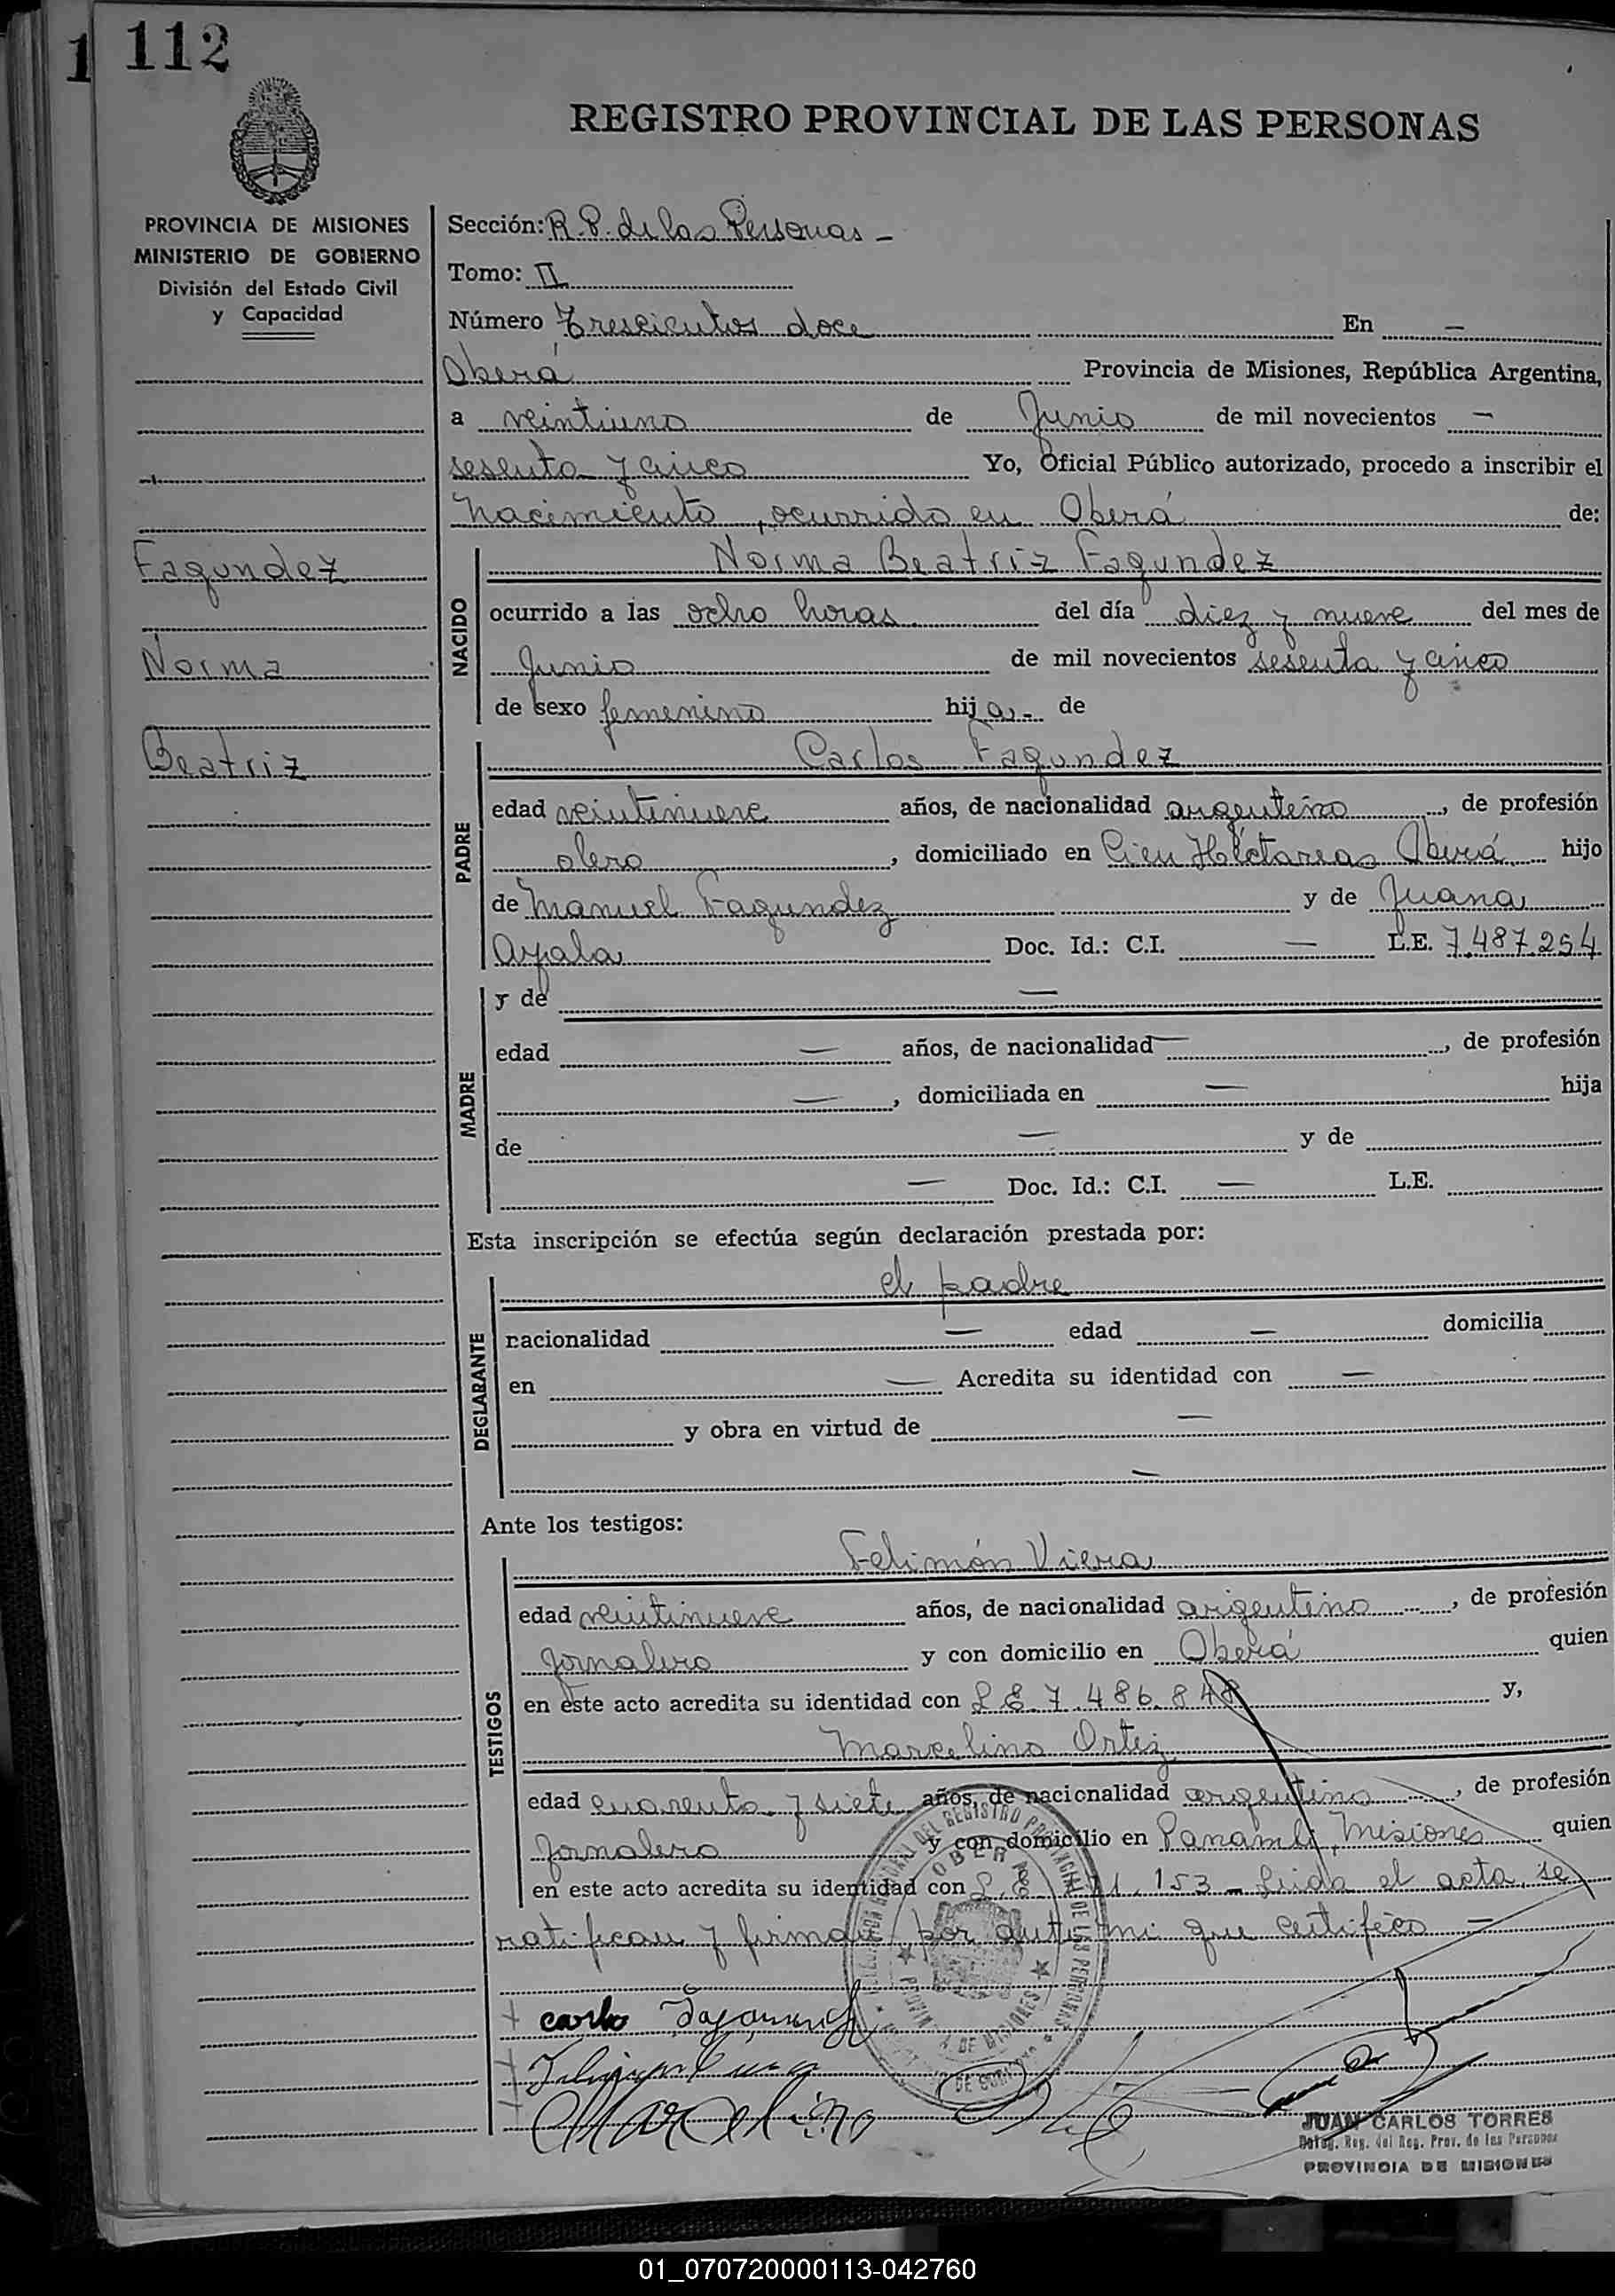 1
112
REGISTRO PROVINCIAL DE LAS PERSONAS
PROVINCIA DE MISIONES
MINISTERIO DE GOBIERNO
División del Estado Civil
y Capacidad
Fagundez
Norma
Beatriz
Sección: R.P. de las Personas -
Tomo: II
Número Trescientos doce En —
Oberá Provincia de Misiones, República Argentina,
a veintiuno de Junio de mil novecientos —
sesenta y cinco Yo, Oficial Público autorizado, procedo a inscribir el
nacimiento, ocurrido en Oberá de:
NACIDO
Norma Beatriz Fagundez
ocurrido a las ocho horas del día diez y nueve del mes de
Junio de mil novecientos sesenta y cinco
de sexo femenino hija - de
PADRE
Carlos Fagundez
edad veintinueve años, de nacionalidad argentino, de profesión
olero, domiciliado en Cien Héctareas Oberá hijo
de Manuel Fagundez y de Juana
Ayala Doc. Id.: C.I. — L.E. 7.487.254
MADRE
y de —
edad — años, de nacionalidad —, de profesión
—, domiciliada en — hija
de — y de
— Doc. Id.: C.I. — L.E.
Esta inscripción se efectúa según declaración prestada por:
DECLARANTE
el padre
nacionalidad — edad — domicilia
en — Acredita su identidad con —
y obra en virtud de —
—
Ante los testigos:
TESTIGOS
Felimón Viera
edad veintinueve años, de nacionalidad argentino, de profesión
Jornalero y con domicilio en Oberá quien
en este acto acredita su identidad con L E 7.486.848 y,
Marcelino Ortiz
edad cuarenta y siete años, de nacionalidad argentino, de profesión
Jornalero y con domicilio en Panambí, Misiones quien
en este acto acredita su identidad con L.E. 153 - Leida el acta, se
ratifican y firman por ante mi que certifico —
carlo
Marcelino
JUAN CARLOS TORRES
Deleg. Reg. del Reg. Prov. de las Personas
PROVINCIA DE MISIONES
01_070720000113-042760